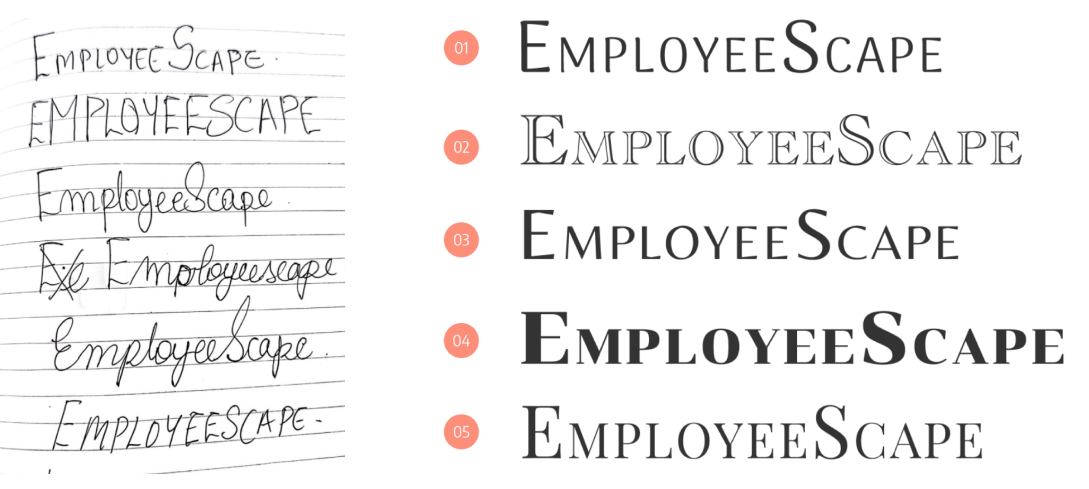 EmployeeScape.
EMPLOYEESCAPE
EmployeeScape.
Employeescape
EmployeeScape.
EMPLOYEESCAPE-
01 EMPLOYEESCAPE
02 EMPLOYEESCAPE
03 EMPLOYEESCAPE
04 EMPLOYEESCAPE
05 EMPLOYEESCAPE